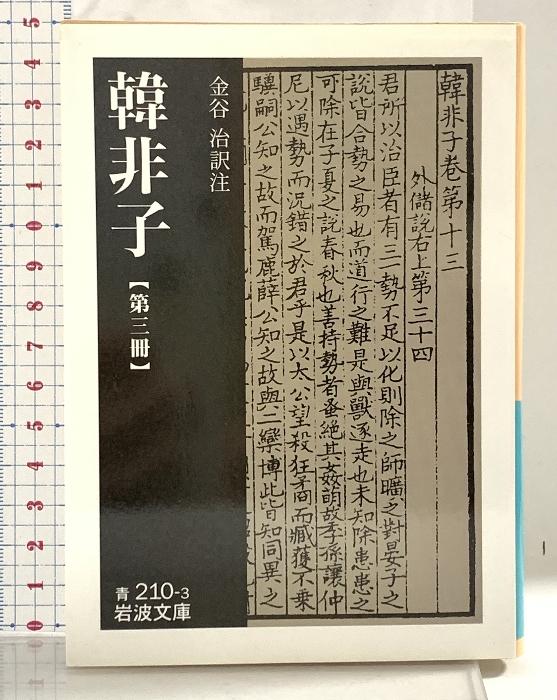 韓非子【第三冊】
金谷 治訳注
韓非子巻第十三
外儲說右上第三十四
君所以治臣者有三勢不足以化則除之師曠之對晏子之
說皆合勢之易也而道行之難是與獸逐走也未知除患患之
可除在子夏之說春秋也善持勢者蚤絕其姦萌故季孫讓仲
尼以遇勢而況錯之於君乎是以太公望殺狂矞而臧獲不乗
驥嗣公知之故而駕鹿薛公知之故與二欒博此皆知同異之
青 210-3
岩波文庫
5
4
3
2
1
0
9
8
7
6
5
4
3
2
1
0